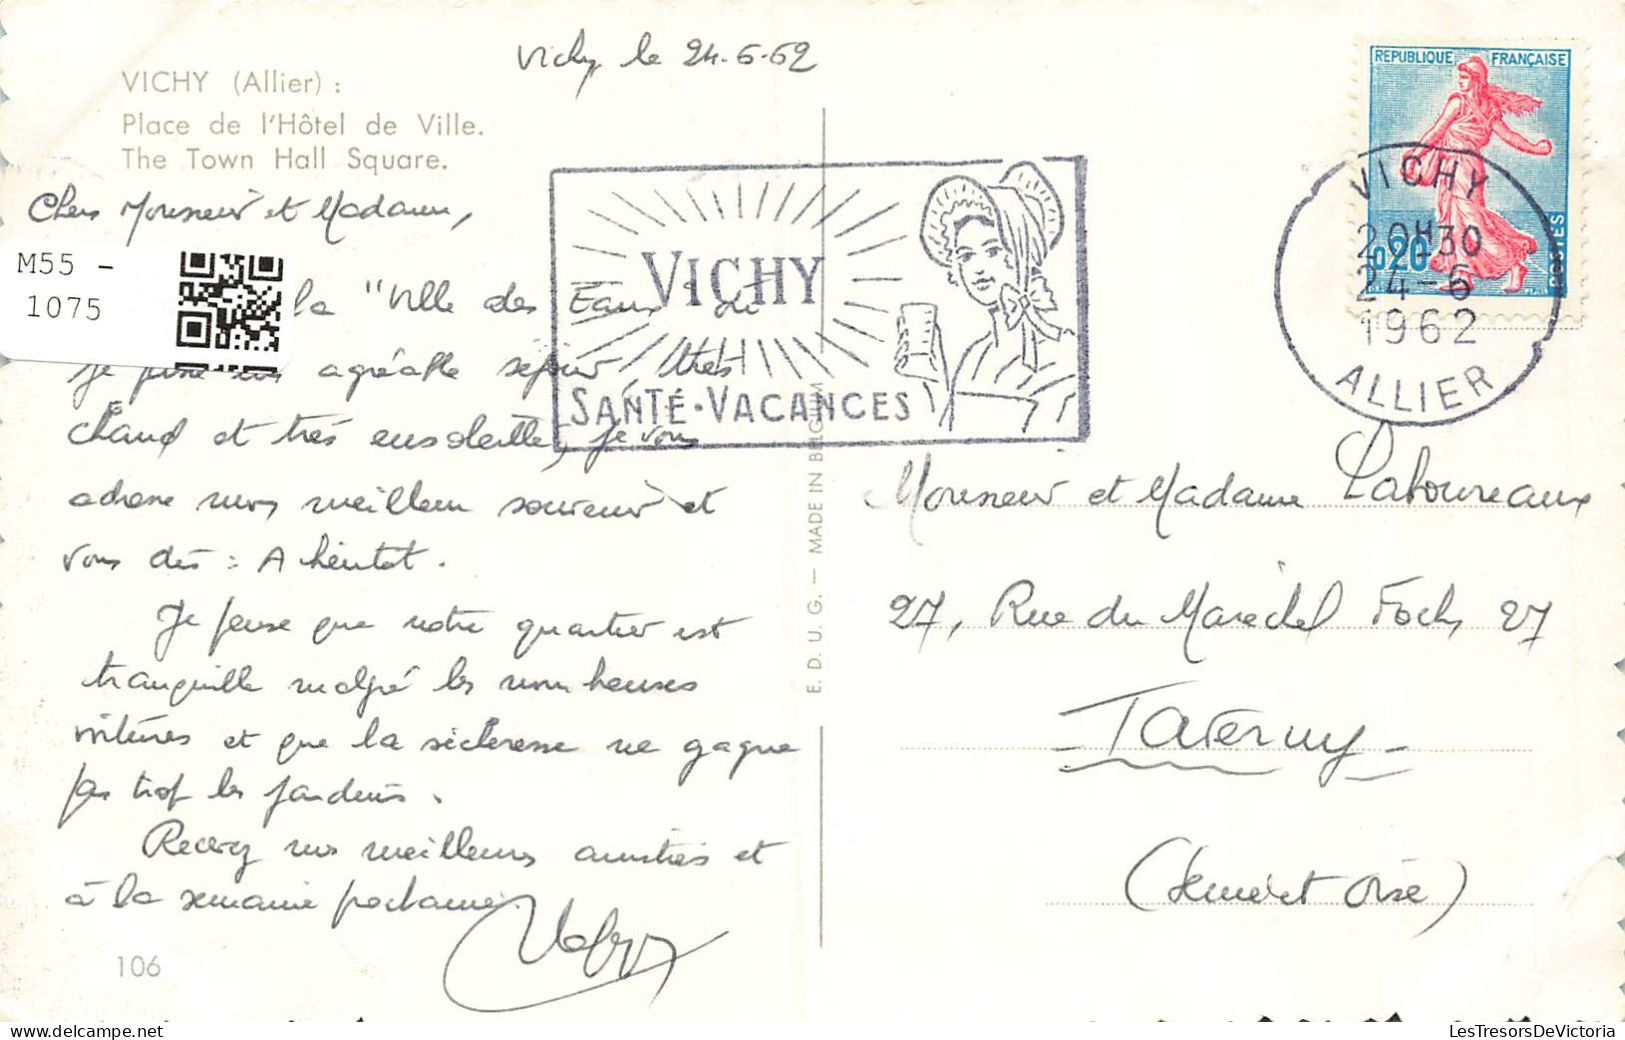 Vichy le 24-6-62
VICHY (Allier) :
Place de l'Hôtel de Ville.
The Town Hall Square.
Chers Monsieur et Madame,
M55 -
1075
la "Ville des Eaux" où
je passe un agréable séjour, très
chaud et très ensoleillé, je vous
adresse mes meilleurs souvenirs et
vous dis : A bientôt.
Je pense que notre quartier est
tranquille malgré les nombreuses
voitures et que la sécheresse ne gagne
pas trop les jardins.
Recevez mes meilleures amitiés et
à la semaine prochaine.
106
VICHY
SANTÉ·VACANCES
E. D. U. G. — MADE IN BELGIUM
REPUBLIQUE FRANÇAISE
0,20
POSTES
VICHY
20H30
24-6
1962
ALLIER
Monsieur et Madame Laboureaux
27, Rue du Maréchal Foch, 27
- Taverny -
(Seine et Oise)
LesTresorsDeVictoria